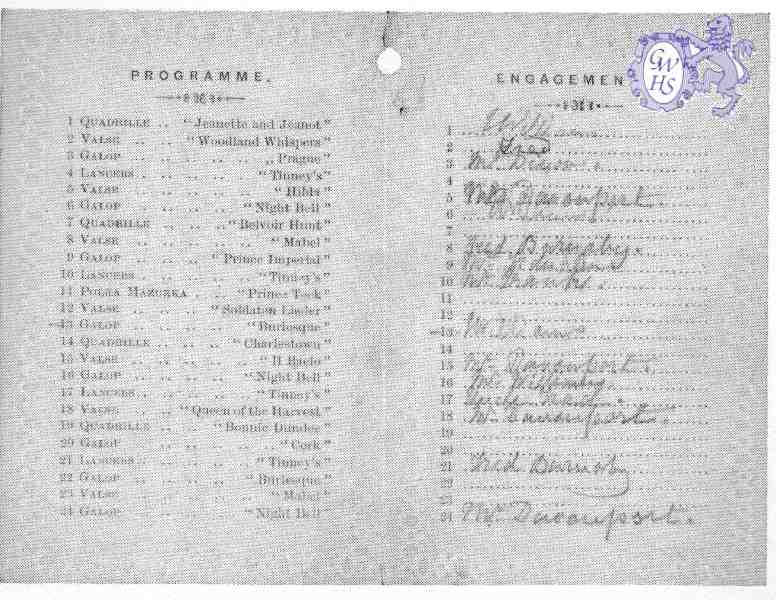 PROGRAMME.
1 QUADRILLE .. "Jeanette and Jeanot"
2 VALSE .. .. "Woodland Whispers"
3 GALOP .. .. .. „Prague"
4 LANCERS .. .. .. "Tinney's"
5 VALSE .. .. .. .. "Hilda"
6 GALOP .. .. .. "Night Bell"
7 QUADRILLE .. .. "Belvoir Hunt"
8 VALSE .. .. .. .. "Mabel"
9 GALOP .. .. "Prince Imperial"
10 LANCERS .. .. .. "Tinney's"
11 POLKA MAZURKA . .. "Prince Teck"
12 VALSE .. .. "Soldaten Lieder"
13 GALOP .. .. .. "Burlesque"
14 QUADRILLE .. .. "Charlestown"
15 VALSE .. .. .. "Il Bacio"
16 GALOP .. .. .. "Night Bell"
17 LANCERS .. .. .. "Tinney's"
18 VALSE .. .. "Queen of the Harvest"
19 QUADRILLE .. .. "Bonnie Dundee"
20 GALOP .. .. .. .. "Cork"
21 LANCERS .. .. .. "Tinney's"
22 GALOP .. .. .. "Burlesque"
23 VALSE .. .. .. .. "Mabel"
24 GALOP .. .. .. "Night Bell"
GWHS
ENGAGEMEN
1
2 Fred
3 Mr
4
5 Davenport
6
7
8 Fred Burnaby
9
10 Mr
11
12
13 Mr
14
15 Mr Davenport
16 Mr
17
18 Mr Davenport
19
20
21 Fred Burnaby
22
23
24 Mr Davenport.